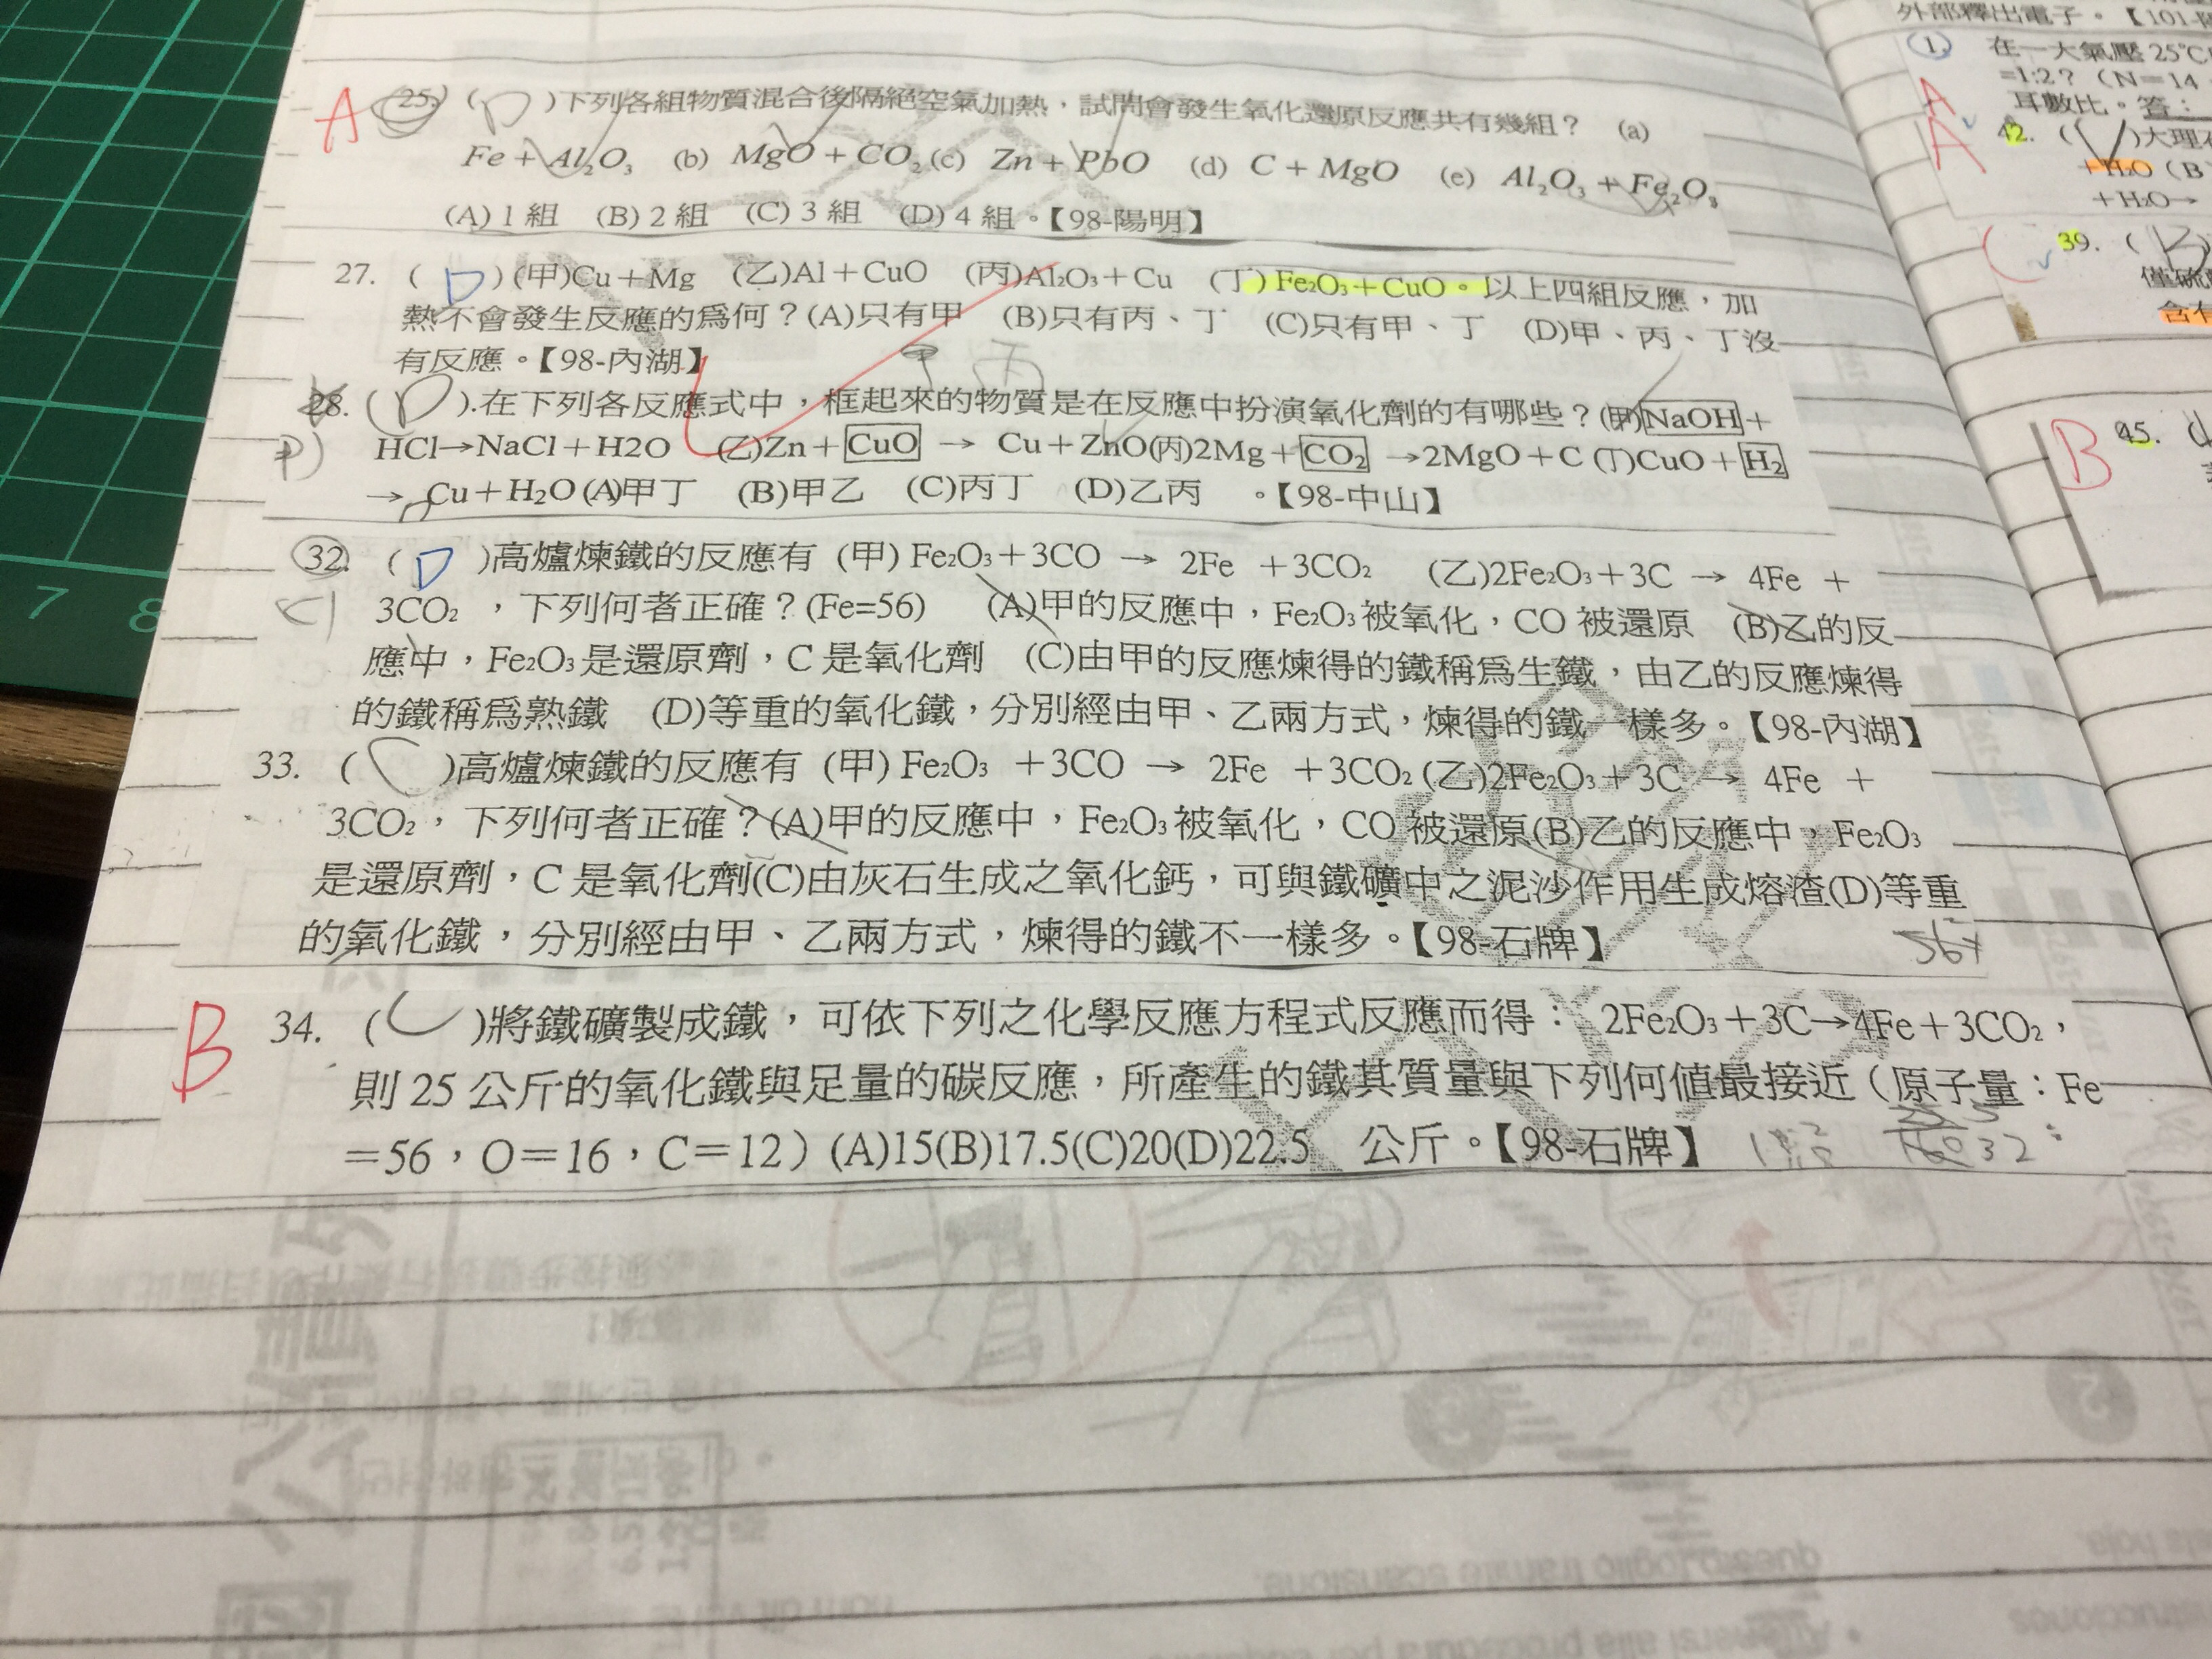 A 25. ( D )下列各組物質混合後隔絕空氣加熱，試問會發生氧化還原反應共有幾組？ (a)
Fe + Al₂O₃ (b) MgO + CO₂ (c) Zn + PbO (d) C + MgO (e) Al₂O₃ + Fe₂O₃
(A) 1 組 (B) 2 組 (C) 3 組 (D) 4 組。【98-陽明】
27. ( D )(甲)Cu＋Mg (乙)Al＋CuO (丙)Al₂O₃＋Cu (丁) Fe₂O₃＋CuO。以上四組反應，加
熱不會發生反應的為何？(A)只有甲 (B)只有丙、丁 (C)只有甲、丁 (D)甲、丙、丁沒
有反應。【98-內湖】
甲 丙
28. ( D ).在下列各反應式中，框起來的物質是在反應中扮演氧化劑的有哪些？(甲)NaOH＋
HCl→NaCl＋H2O (乙)Zn＋CuO → Cu＋ZnO(丙)2Mg＋CO₂ →2MgO＋C (丁)CuO＋H₂
→ Cu＋H₂O (A)甲丁 (B)甲乙 (C)丙丁 (D)乙丙 。【98-中山】
32. ( D )高爐煉鐵的反應有 (甲) Fe₂O₃＋3CO → 2Fe ＋3CO₂ (乙)2Fe₂O₃＋3C → 4Fe ＋
3CO₂ ，下列何者正確？(Fe=56) (A)甲的反應中，Fe₂O₃被氧化，CO 被還原 (B)乙的反
應中，Fe₂O₃是還原劑，C 是氧化劑 (C)由甲的反應煉得的鐵稱為生鐵，由乙的反應煉得
的鐵稱為熟鐵 (D)等重的氧化鐵，分別經由甲、乙兩方式，煉得的鐵一樣多。【98-內湖】
33. ( C )高爐煉鐵的反應有 (甲) Fe₂O₃ ＋3CO → 2Fe ＋3CO₂ (乙)2Fe₂O₃＋3C → 4Fe ＋
3CO₂，下列何者正確？(A)甲的反應中，Fe₂O₃被氧化，CO 被還原(B)乙的反應中，Fe₂O₃
是還原劑，C 是氧化劑(C)由灰石生成之氧化鈣，可與鐵礦中之泥沙作用生成熔渣(D)等重
的氧化鐵，分別經由甲、乙兩方式，煉得的鐵不一樣多。【98-石牌】
B 34. ( C )將鐵礦製成鐵，可依下列之化學反應方程式反應而得： 2Fe₂O₃＋3C→4Fe＋3CO₂，
則 25 公斤的氧化鐵與足量的碳反應，所產生的鐵其質量與下列何值最接近（原子量：Fe
＝56，O＝16，C＝12）(A)15(B)17.5(C)20(D)22.5 公斤。【98-石牌】
外部釋出電子。【101-
1. 在一大氣壓 25℃
=1:2？（N＝14
耳數比。答：
A
A 42. ( )大理
＋H₂O (B
＋H₂O→
39. ( B
僅硫
含有
B 45.
7 8